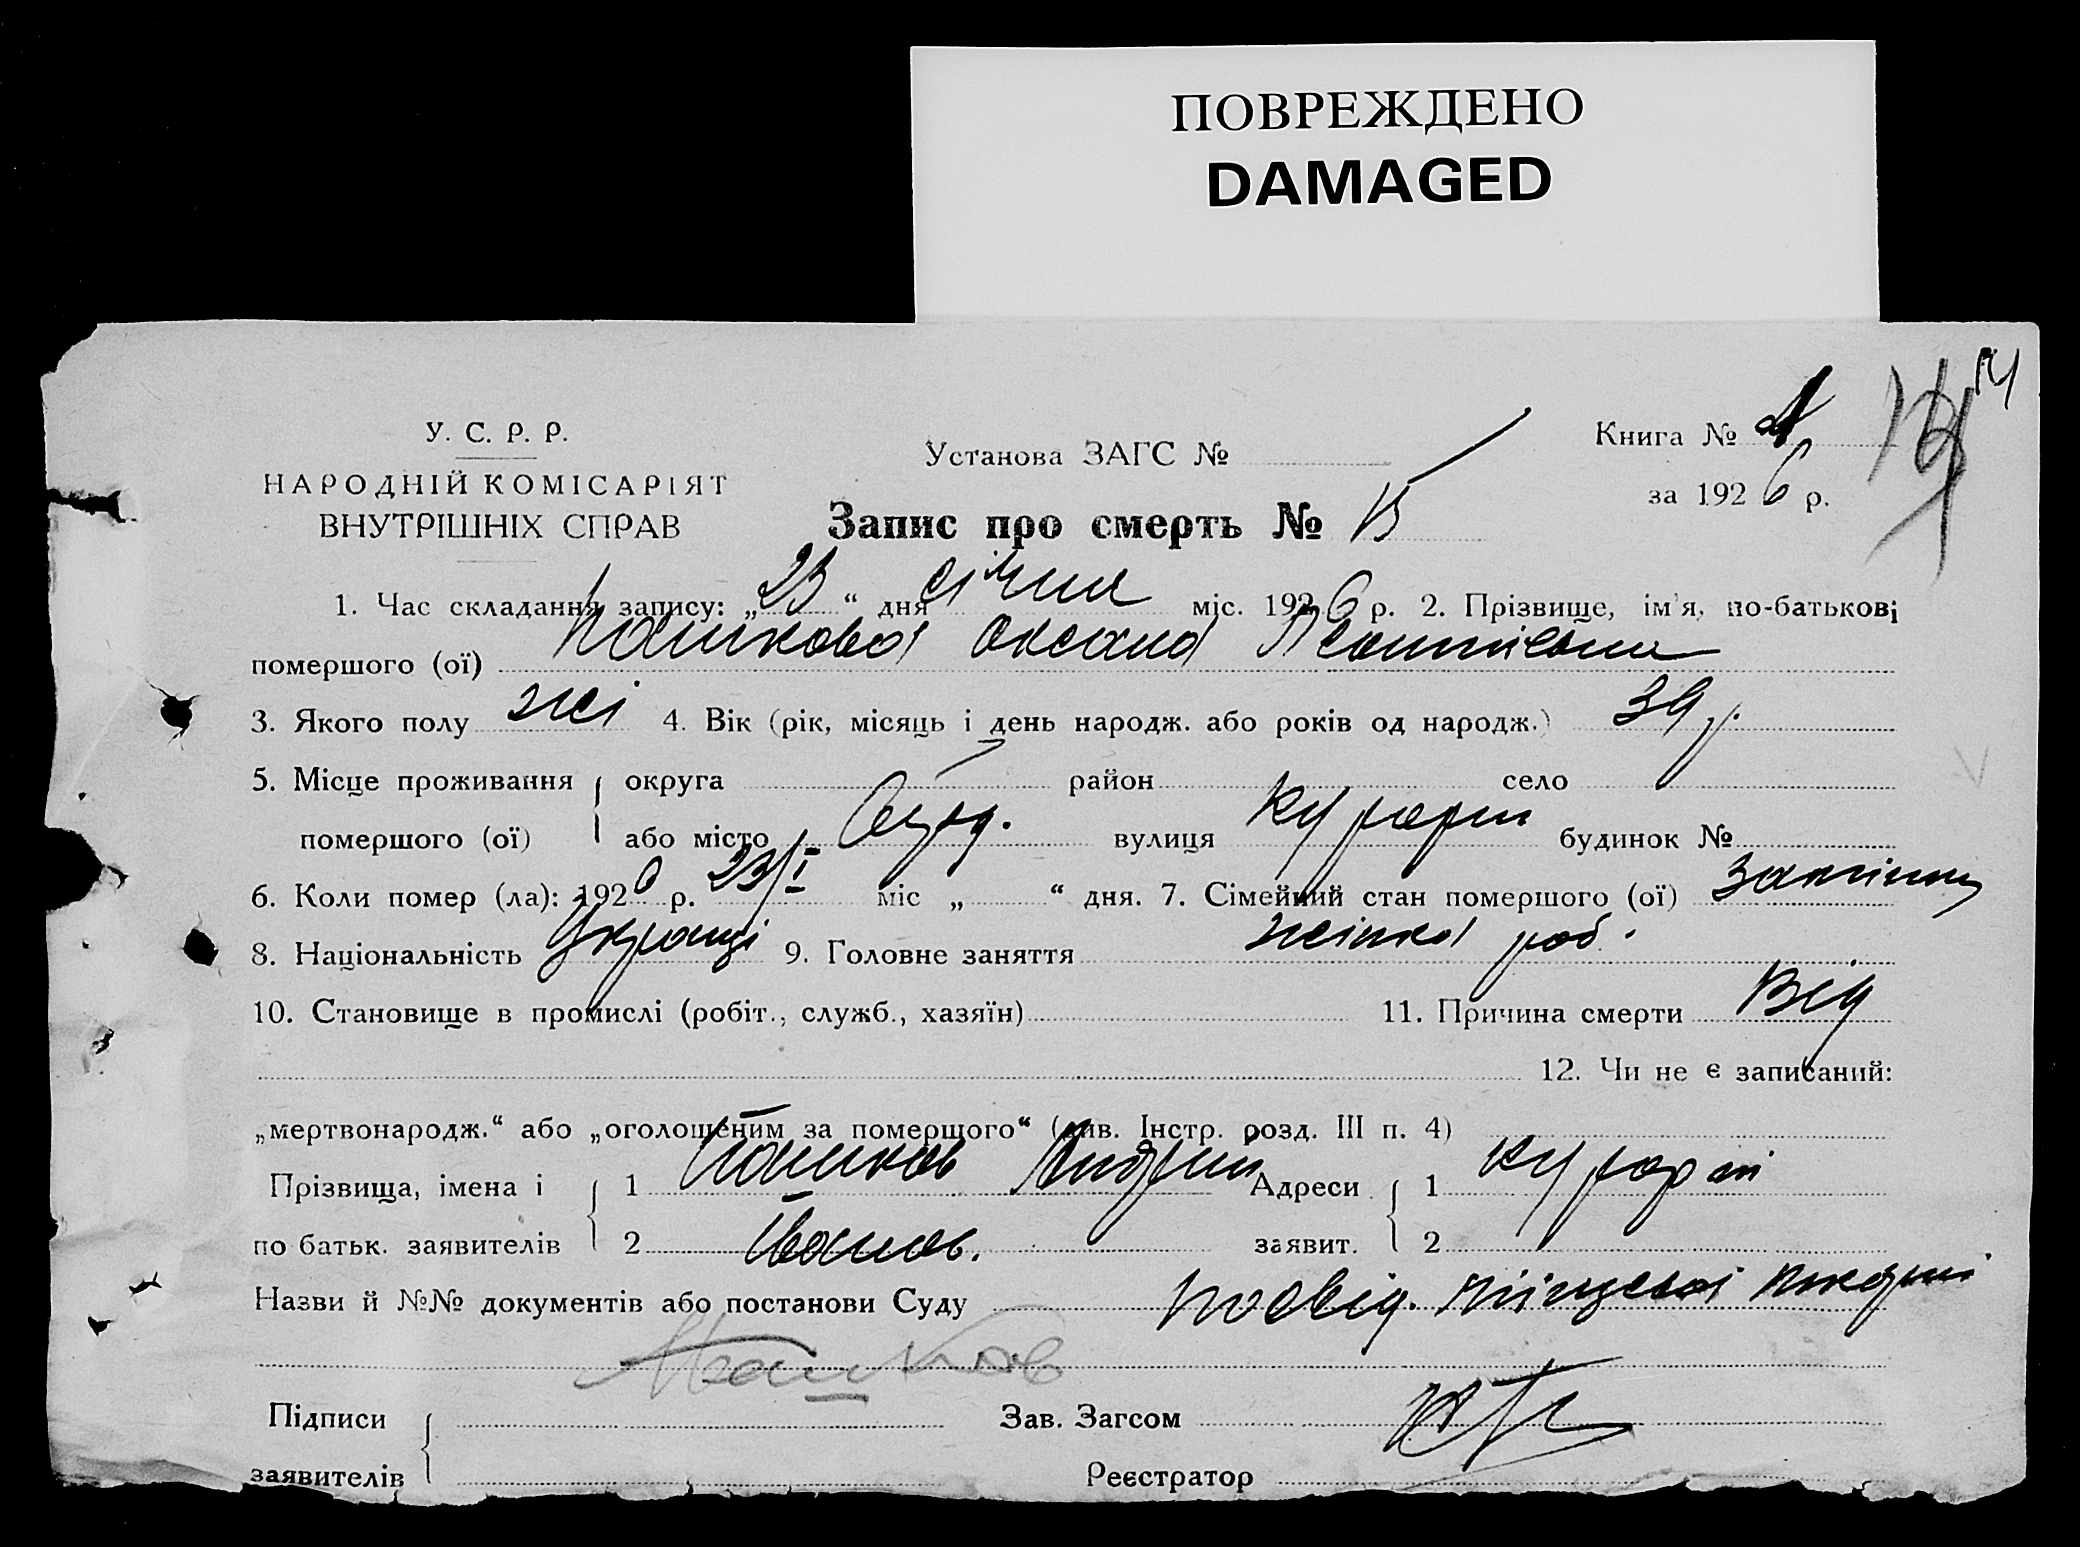 ПОВРЕЖДЕНО
DAMAGED
14
У. С. Р. Р.
НАРОДНІЙ КОМІСАРІЯТ
ВНУТРІШНІХ СПРАВ
Установа ЗАГС №
Книга №
за 1926 р.
Запис про смерть № 15
1. Час складання запису: „23“ дня січня міс. 1926 р. 2. Прізвище, ім'я, по-батькові
помершого (ої) Пашкова Оксана Леонтієвна
3. Якого полу жі 4. Вік (рік, місяць і день народж. або років од народж.) 39 р.
5. Місце проживання округа район село
помершого (ої) або місто вулиця Курорт будинок №
6. Коли помер (ла): 1926 р. 23/I міс „ “ дня. 7. Сімейний стан помершого (ої)
8. Національність Украці 9. Головне заняття жінка роб.
10. Становище в промислі (робіт., служб., хазяїн) 11. Причина смерти Від
12. Чи не є записаний:
„мертвонародж.“ або „оголошеним за помершого“ (див. Інстр. розд. III п. 4) —
Прізвища, імена і 1 Пашков Андрій Адреси 1 Курорт
по батьк. заявителів 2 Іванов. заявит. 2
Назви й №№ документів або постанови Суду посвід.
Пашков
Підписи Зав. Загсом
заявителів Реєстратор